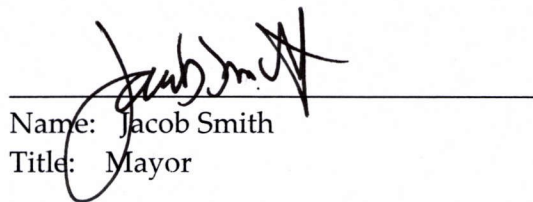 Jacob Smith
Name: Jacob Smith
Title: Mayor